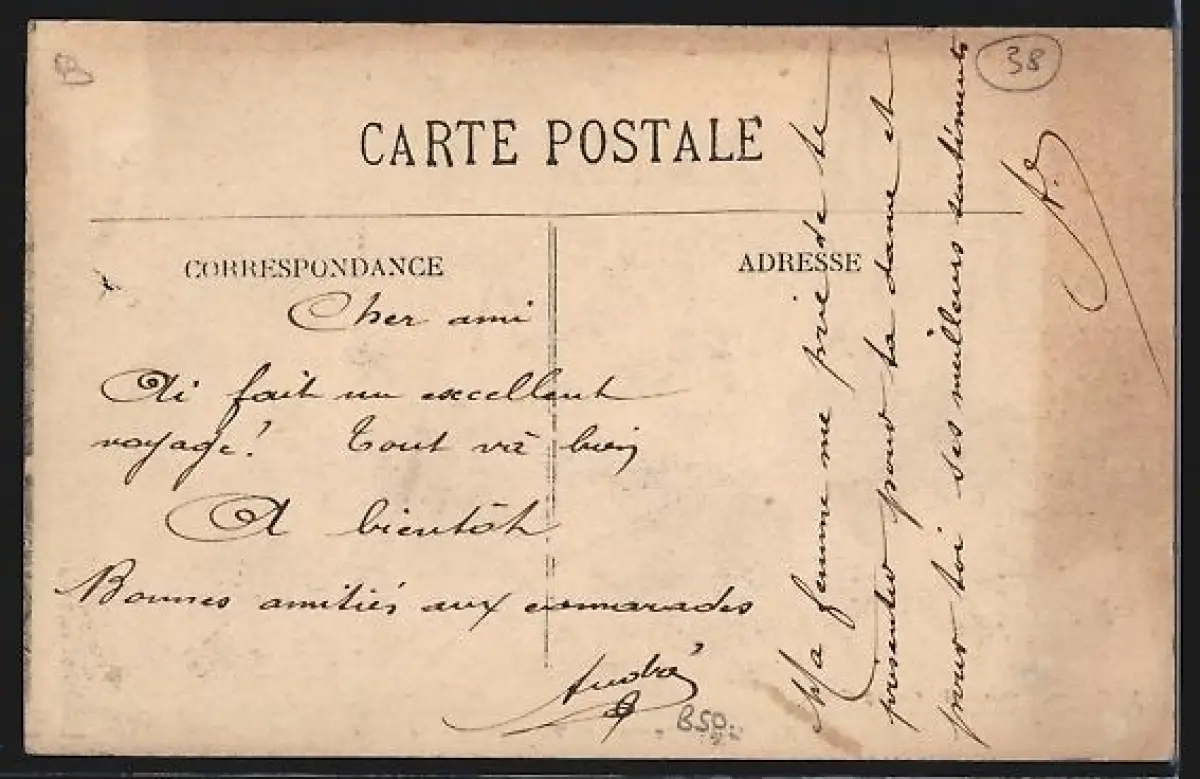 38
CARTE POSTALE
CORRESPONDANCE
ADRESSE
Cher ami
Ai fait un excellent
voyage! Tout và bien
A bientôt
Bonnes amitiés aux camarades
André
B50
Ma femme me prie de te
présenter pour ta dame et
pour toi ses meilleurs sentiments
A.